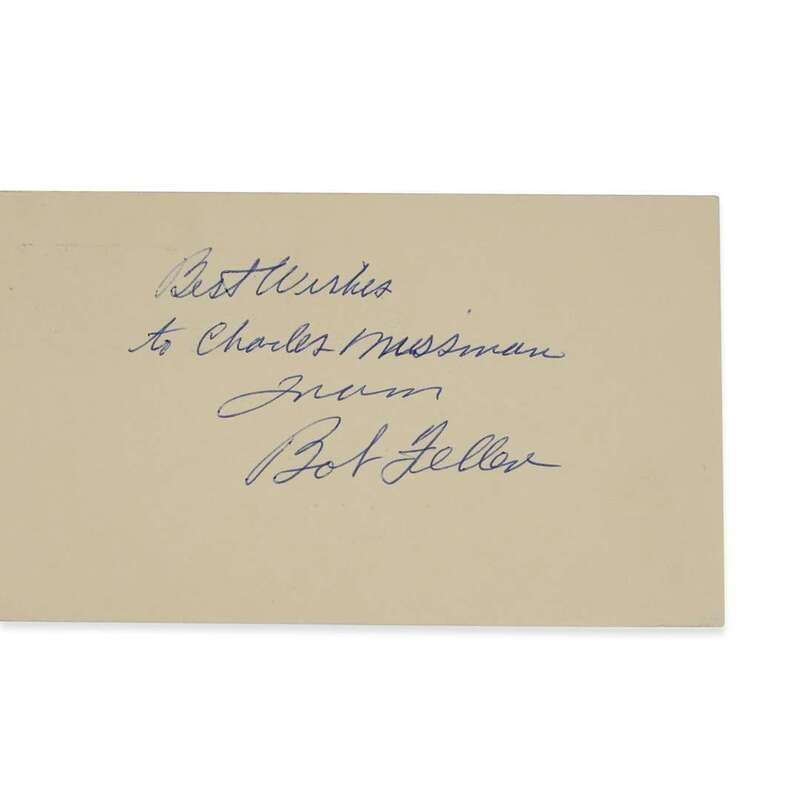 Best Wishes
to Charles Missiman
From
Bob Feller